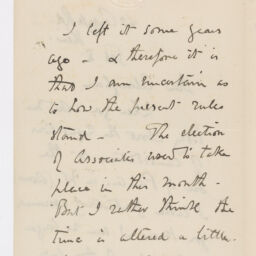 I left it some years
ago - & therefore it is
that I am uncertain as
to how the present rules
stand - The election
of Associates used to take
place in this month -
But I rather think the
time is altered a little.